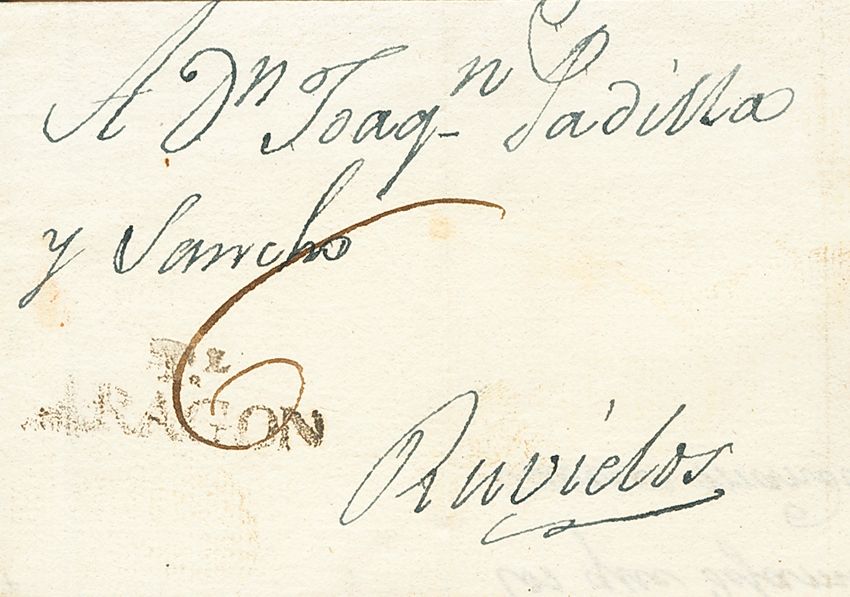 A Dn Joaqn Padilla
y Sancho
6
ARAGON
Ruvielos